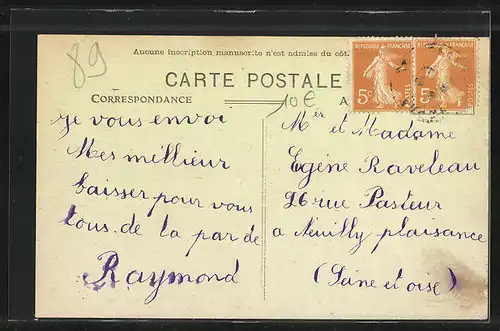 89
Aucune inscription manuscrite n'est admise du côt
REPUBLIQUE FRANÇAISE
5c
POSTES
REPUBLIQUE FRANÇAISE
5c
POSTES
CARTE POSTALE
CORRESPONDANCE
10€
A
Je vous envoi
Mes méllieur
baisser pour vous
tous de la par de
Raymond
Mer et Madame
Egène Raveleau
26 rue Pasteur
a Neuilly plaisance
(Seine et oise)